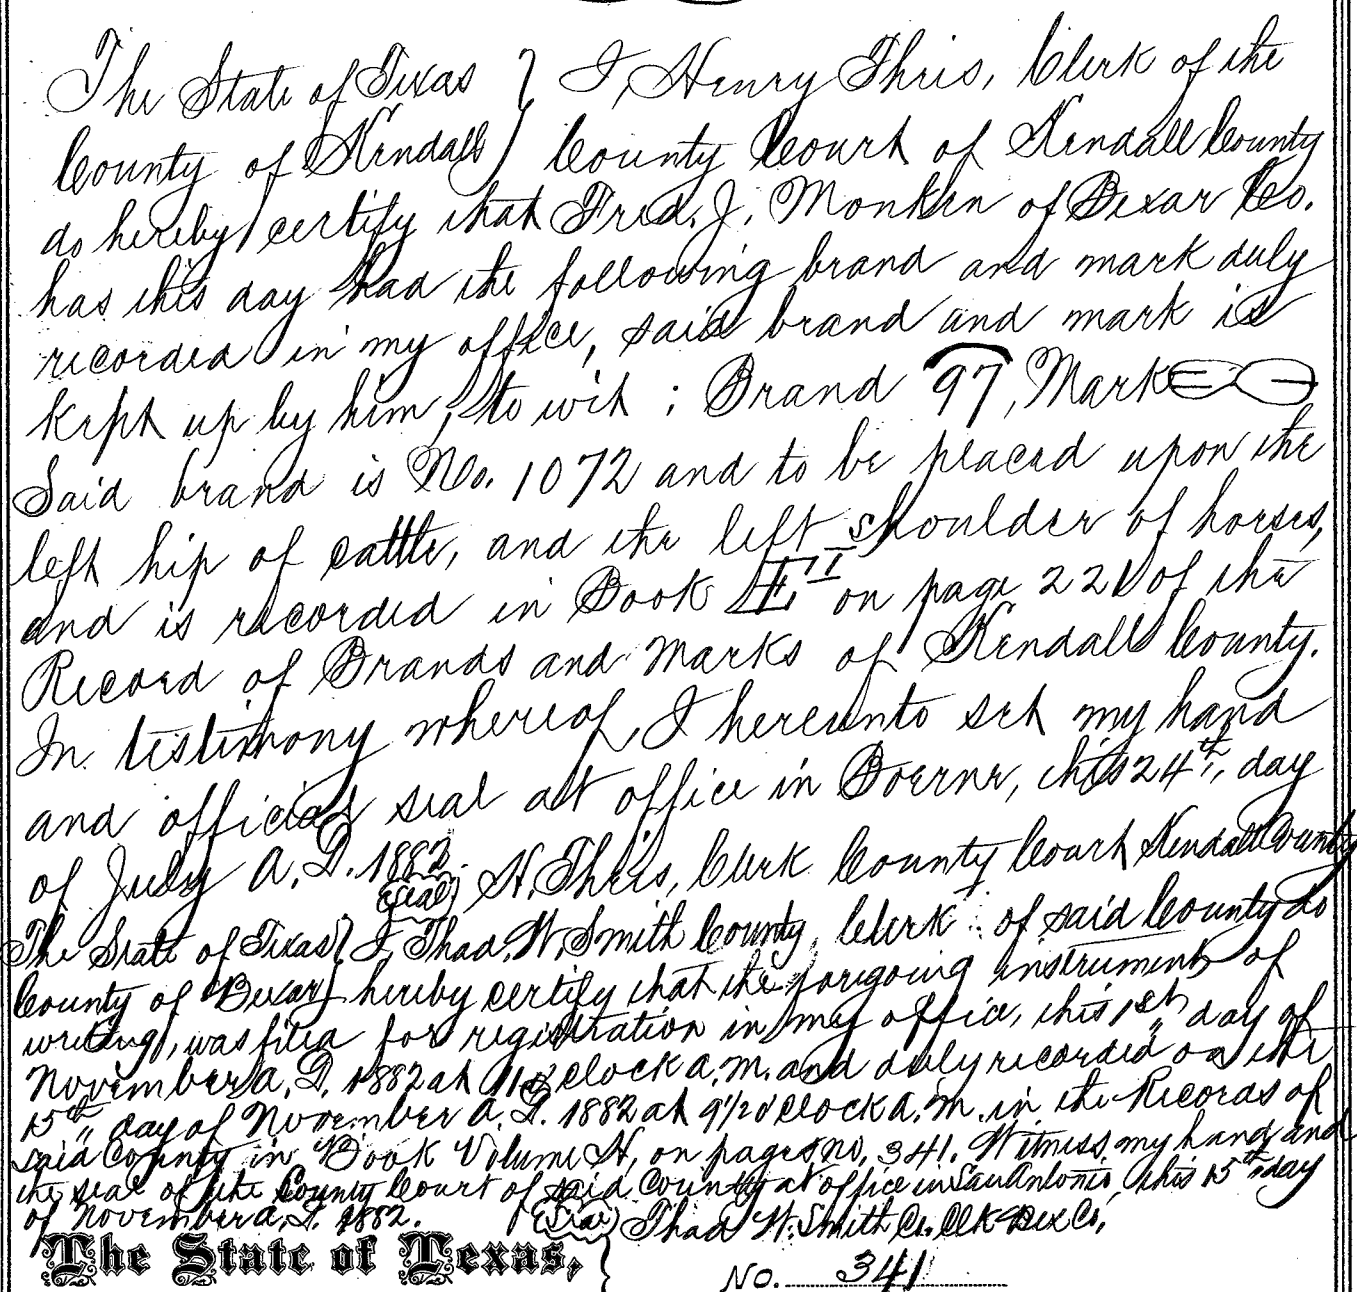 The State of Texas } I, Henry Theis, Clerk of the
County of Kendall } County Court of Kendall County
do hereby certify that Fred. J. Monken of Bexar Co.
has this day had the following brand and mark duly
recorded in my office, said brand and mark is
kept up by him, to wit : Brand 97, Mark
Said brand is No. 1072 and to be placed upon the
left hip of cattle, and the left shoulder of horses,
and is recorded in Book E II on page 221 of the
Record of Brands and Marks of Kendall County.
In testimony whereof, I hereunto set my hand
and official seal at office in Boerne, this 24th, day
of July A. D. 1882.
(Seal) H. Theis, Clerk County Court Kendall County
The State of Texas } I, Thad. W. Smith County Clerk of said County do
County of Bexar } hereby certify that the foregoing instrument of
writing, was filed for registration in my office, this 1st, day of
November A. D. 1882 at 11 o'clock A. M. and duly recorded on the
15th " day of November A. D. 1882 at 9 1/2 o'clock A. M. in the Records of
said County in Book Volume H, on pages no. 341. Witness, my hand, and
the seal of the County Court of said County at office in San Antonio, this 15th day
of November A. D. 1882. (Seal) Thad W. Smith Co. Clk Bex Co,
The State of Texas,
NO. 341